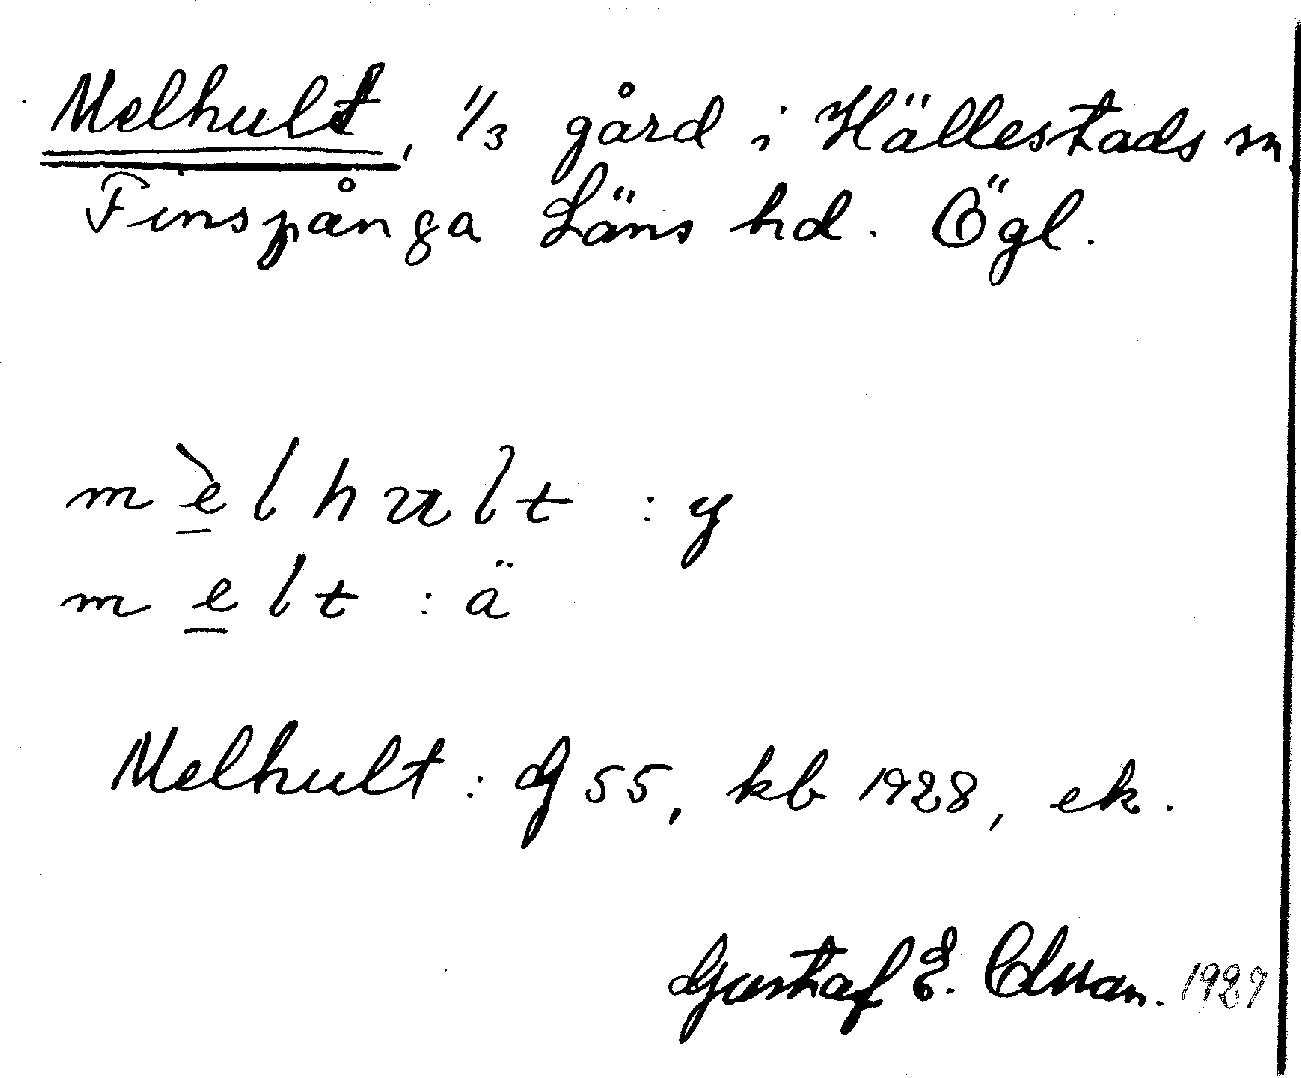 Melhult, 1/3 gård i Hällestads sn
Finspånga Läns hd. Ögl.
mèlhult : y
melt : ä
Melhult : G 55, kb 1928, ek.
Gustaf E. 1927